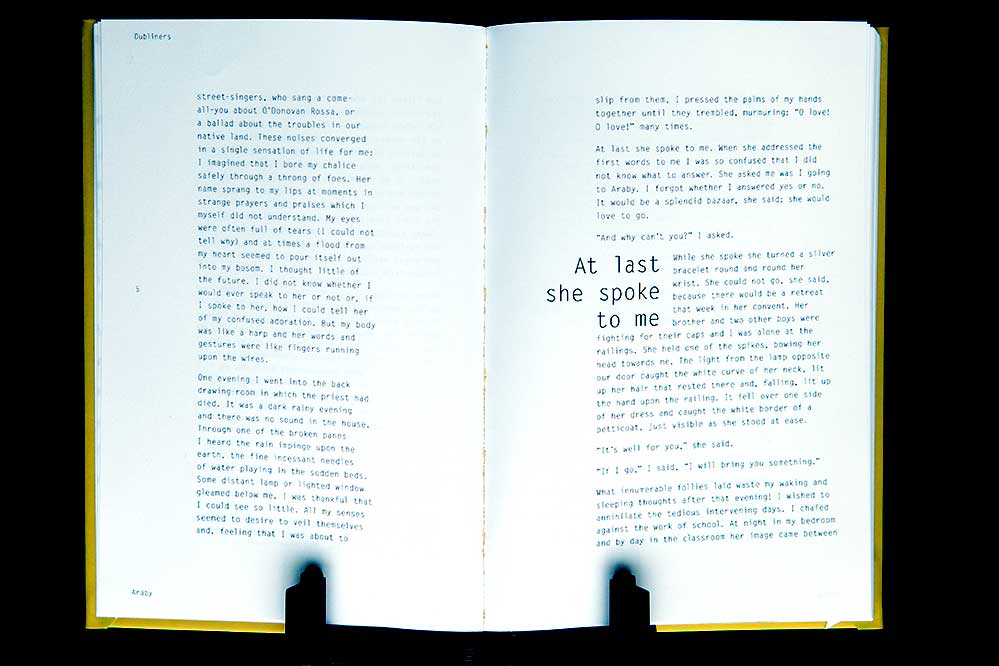 Dubliners
street-singers, who sang a come-
all-you about O'Donovan Rossa, or
a ballad about the troubles in our
native land. These noises converged
in a single sensation of life for me:
I imagined that I bore my chalice
safely through a throng of foes. Her
name sprang to my lips at moments in
strange prayers and praises which I
myself did not understand. My eyes
were often full of tears (I could not
tell why) and at times a flood from
my heart seemed to pour itself out
into my bosom. I thought little of
the future. I did not know whether I
would ever speak to her or not or, if
I spoke to her, how I could tell her
of my confused adoration. But my body
was like a harp and her words and
gestures were like fingers running
upon the wires.
5
One evening I went into the back
drawing-room in which the priest had
died. It was a dark rainy evening
and there was no sound in the house.
Through one of the broken panes
I heard the rain impinge upon the
earth, the fine incessant needles
of water playing in the sodden beds.
Some distant lamp or lighted window
gleamed below me. I was thankful that
I could see so little. All my senses
seemed to desire to veil themselves
and, feeling that I was about to
Araby
slip from them, I pressed the palms of my hands
together until they trembled, murmuring: "O love!
O love!" many times.
At last she spoke to me. When she addressed the
first words to me I was so confused that I did
not know what to answer. She asked me was I going
to Araby. I forgot whether I answered yes or no.
It would be a splendid bazaar, she said; she would
love to go.
"And why can't you?" I asked.
At last
she spoke
to me
While she spoke she turned a silver
bracelet round and round her
wrist. She could not go, she said,
because there would be a retreat
that week in her convent. Her
brother and two other boys were
fighting for their caps and I was alone at the
railings. She held one of the spikes, bowing her
head towards me. The light from the lamp opposite
our door caught the white curve of her neck, lit
up her hair that rested there and, falling, lit up
the hand upon the railing. It fell over one side
of her dress and caught the white border of a
petticoat, just visible as she stood at ease.
"It's well for you," she said.
"If I go," I said, "I will bring you something."
What innumerable follies laid waste my waking and
sleeping thoughts after that evening! I wished to
annihilate the tedious intervening days. I chafed
against the work of school. At night in my bedroom
and by day in the classroom her image came between